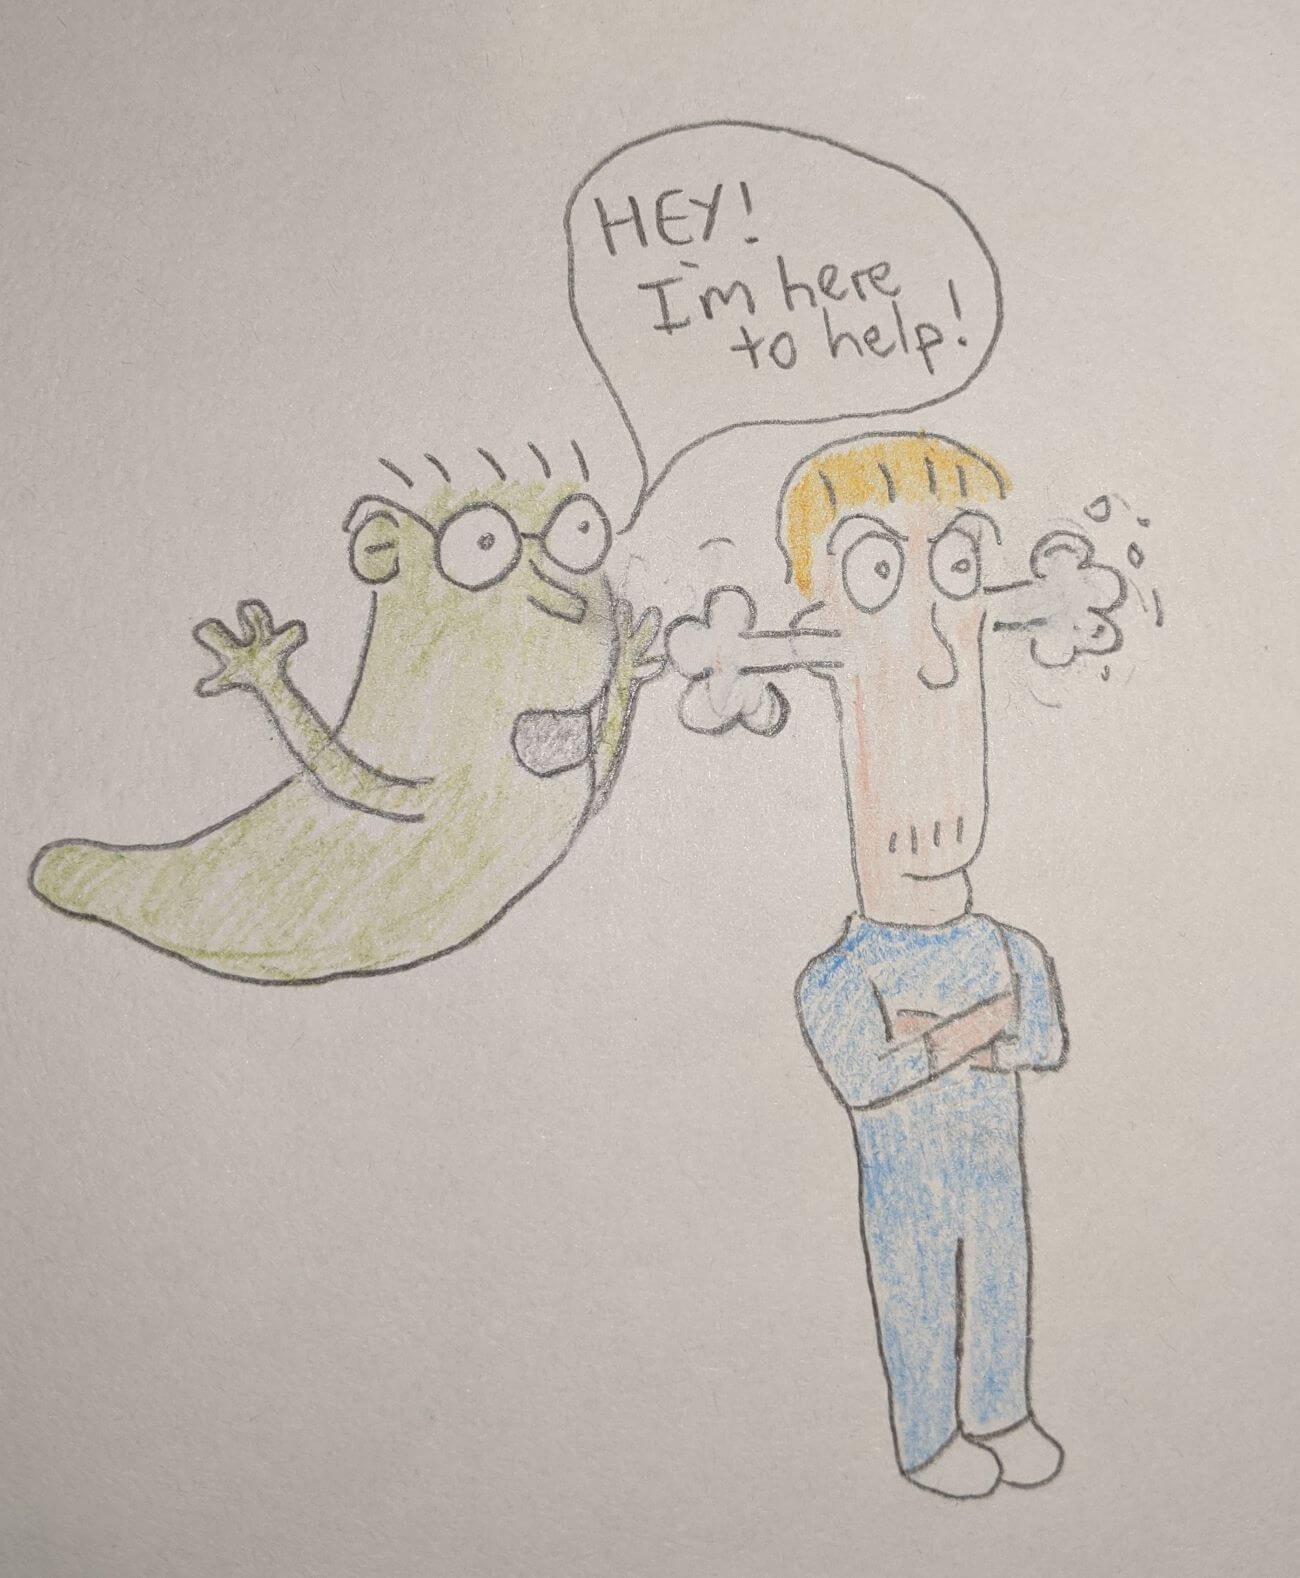 HEY!
I'm here
to help!